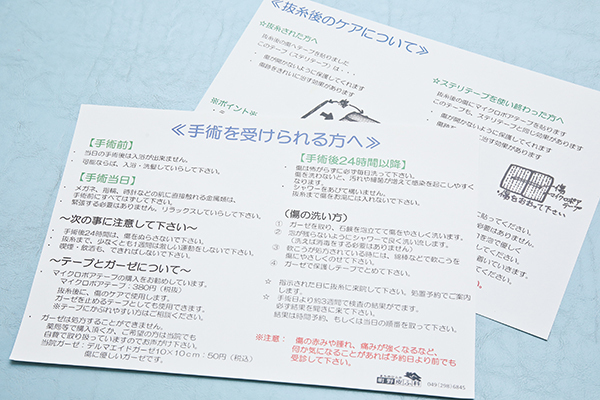 ≪抜糸後のケアについて≫
☆抜糸された方へ
抜糸後の傷へテープを貼りました
このテープ（ステリテープ）は・・・
傷が開かないように保護してくれます
傷跡をきれいに治す効果があります
☆ステリテープを使い終わった方へ
抜糸後の傷にマイクロポアテープを貼ります
このテープも、ステリテープと同じ効果があり
傷が開かないように保護してくれます
に治す効果があります
傷
マイクロポア
テープ
≪手術を受けられる方へ≫
【手術前】
・当日の手術後は入浴が出来ません。
可能ならば、入浴・洗髪していらして下さい。
【手術当日】
・メガネ、指輪、時計などの肌に直接触れる金属類は、
手術前にすべてはずして下さい。
・緊張する必要はありません、リラックスしていらして下さい。
～次の事に注意して下さい～
・手術後24時間は、傷をぬらさないで下さい。
・抜糸まで、少なくとも1週間は激しい運動をしないで下さい。
・喫煙・飲酒も、できればしないで下さい。
～テープとガーゼについて～
・マイクロポアテープの購入をお勧めしています。
マイクロポアテープ：380円（税抜）
抜糸後に、傷のケアで使用します。
ガーゼを止めるテープとしても使用できます。
※テープにかぶれやすい方はご相談ください。
・ガーゼは処方することができません。
薬局等で購入頂くか、ご希望の方は当院でも
自費で取り扱っていますのでお声かけ下さい。
当院ガーゼ：デルマエイドガーゼ10×10cm：50円（税込）
傷に優しいガーゼです。
【手術後24時間以降】
・傷は怖がらずに必ず毎日洗って下さい。
傷を洗わないと、汚れや細菌が増えて感染を起こしやすく
なります。
・シャワーをあびて構いません。
・抜糸まで傷をお湯には入れないで下さい。
（傷の洗い方）
① ガーゼを取り、石鹸を泡立てて傷をやさしく洗います。
② 泡が残らないようにシャワーで良く洗い流します。
（洗えば消毒をする必要はありません）
③ 軟こうが処方されている時には、綿棒などで軟こうを
傷にやさしくのせて下さい。
④ ガーゼで保護しテープでとめて下さい。
☆ 指示された日に抜糸に来院して下さい。処置予約でご案内
します。
☆ 手術日より約3週間で検査の結果がでます。
必ず結果を聞きに来て下さい。
結果は時間予約、もしくは当日の順番を取って下さい。
※注意： 傷の赤みや腫れ、痛みが強くなるなど、
何か気になることがあれば予約日より前でも
受診して下さい。
町野皮ふ科 049(298)6845